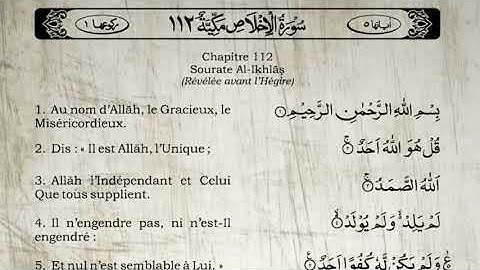 اٰیاتھا ۵ سُوْرَةُ الْاِخْلَاصِ مَكِّیَّةٌ ۱۱۲ رکوعھا ۱
Chapitre 112
Sourate Al-Ikhlāṣ
(Révélée avant l'Hégire)
1. Au nom d'Allāh, le Gracieux, le
Miséricordieux.
بِسْمِ اللّٰهِ الرَّحْمٰنِ الرَّحِيْمِ ۝۱
2. Dis : « Il est Allāh, l'Unique ;
قُلْ هُوَ اللّٰهُ اَحَدٌ ۝۲
3. Allāh l'Indépendant et Celui
Que tous supplient.
اَللّٰهُ الصَّمَدُ ۝۳
4. Il n'engendre pas, ni n'est-Il
engendré ;
لَمْ يَلِدْ ۙ وَلَمْ يُوْلَدْ ۝۴
5. Et nul n'est semblable à Lui. »
وَلَمْ يَكُنْ لَّهٗ كُفُوًا اَحَدٌ ۝۵